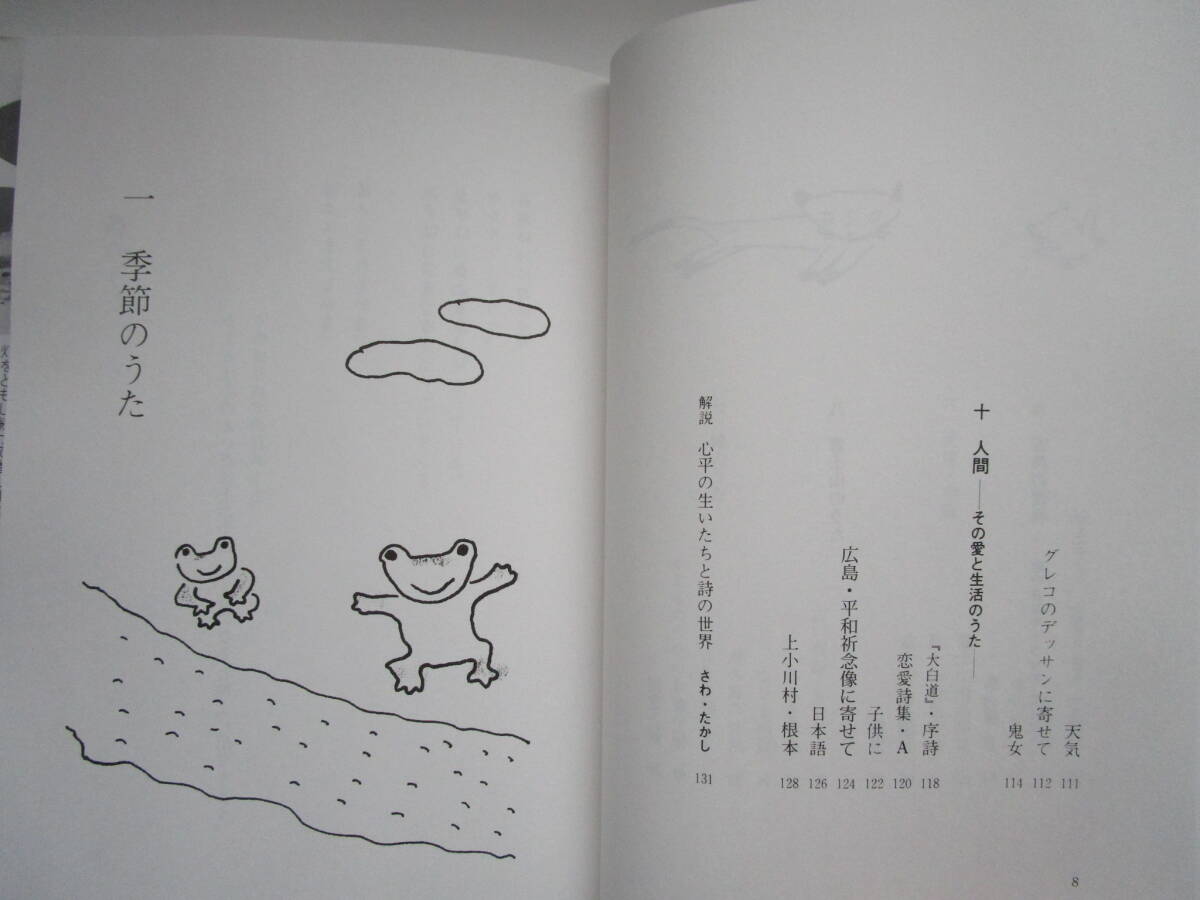 天気 111
グレコのデッサンに寄せて 112
鬼女 114
十 人間――その愛と生活のうた――
『大白道』・序詩 118
恋愛詩集・A 120
子供に 122
広島・平和祈念像に寄せて 124
日本語 126
上小川村・根本 128
解説 心平の生いたちと詩の世界 さわ・たかし 131
8
一 季節のうた